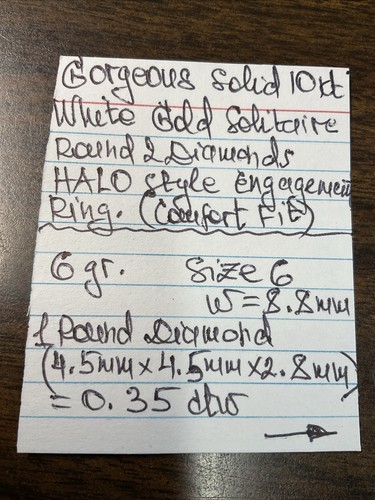 Gorgeous Solid 10kt
White Gold Solitaire
Round 2 Diamonds
HALO Style Engagement
Ring. (Comfort Fit)
6 gr. Size 6
W = 8.8mm
1 Round Diamond
(4.5mm x 4.5mm x 2.8mm)
= 0.35 dtw